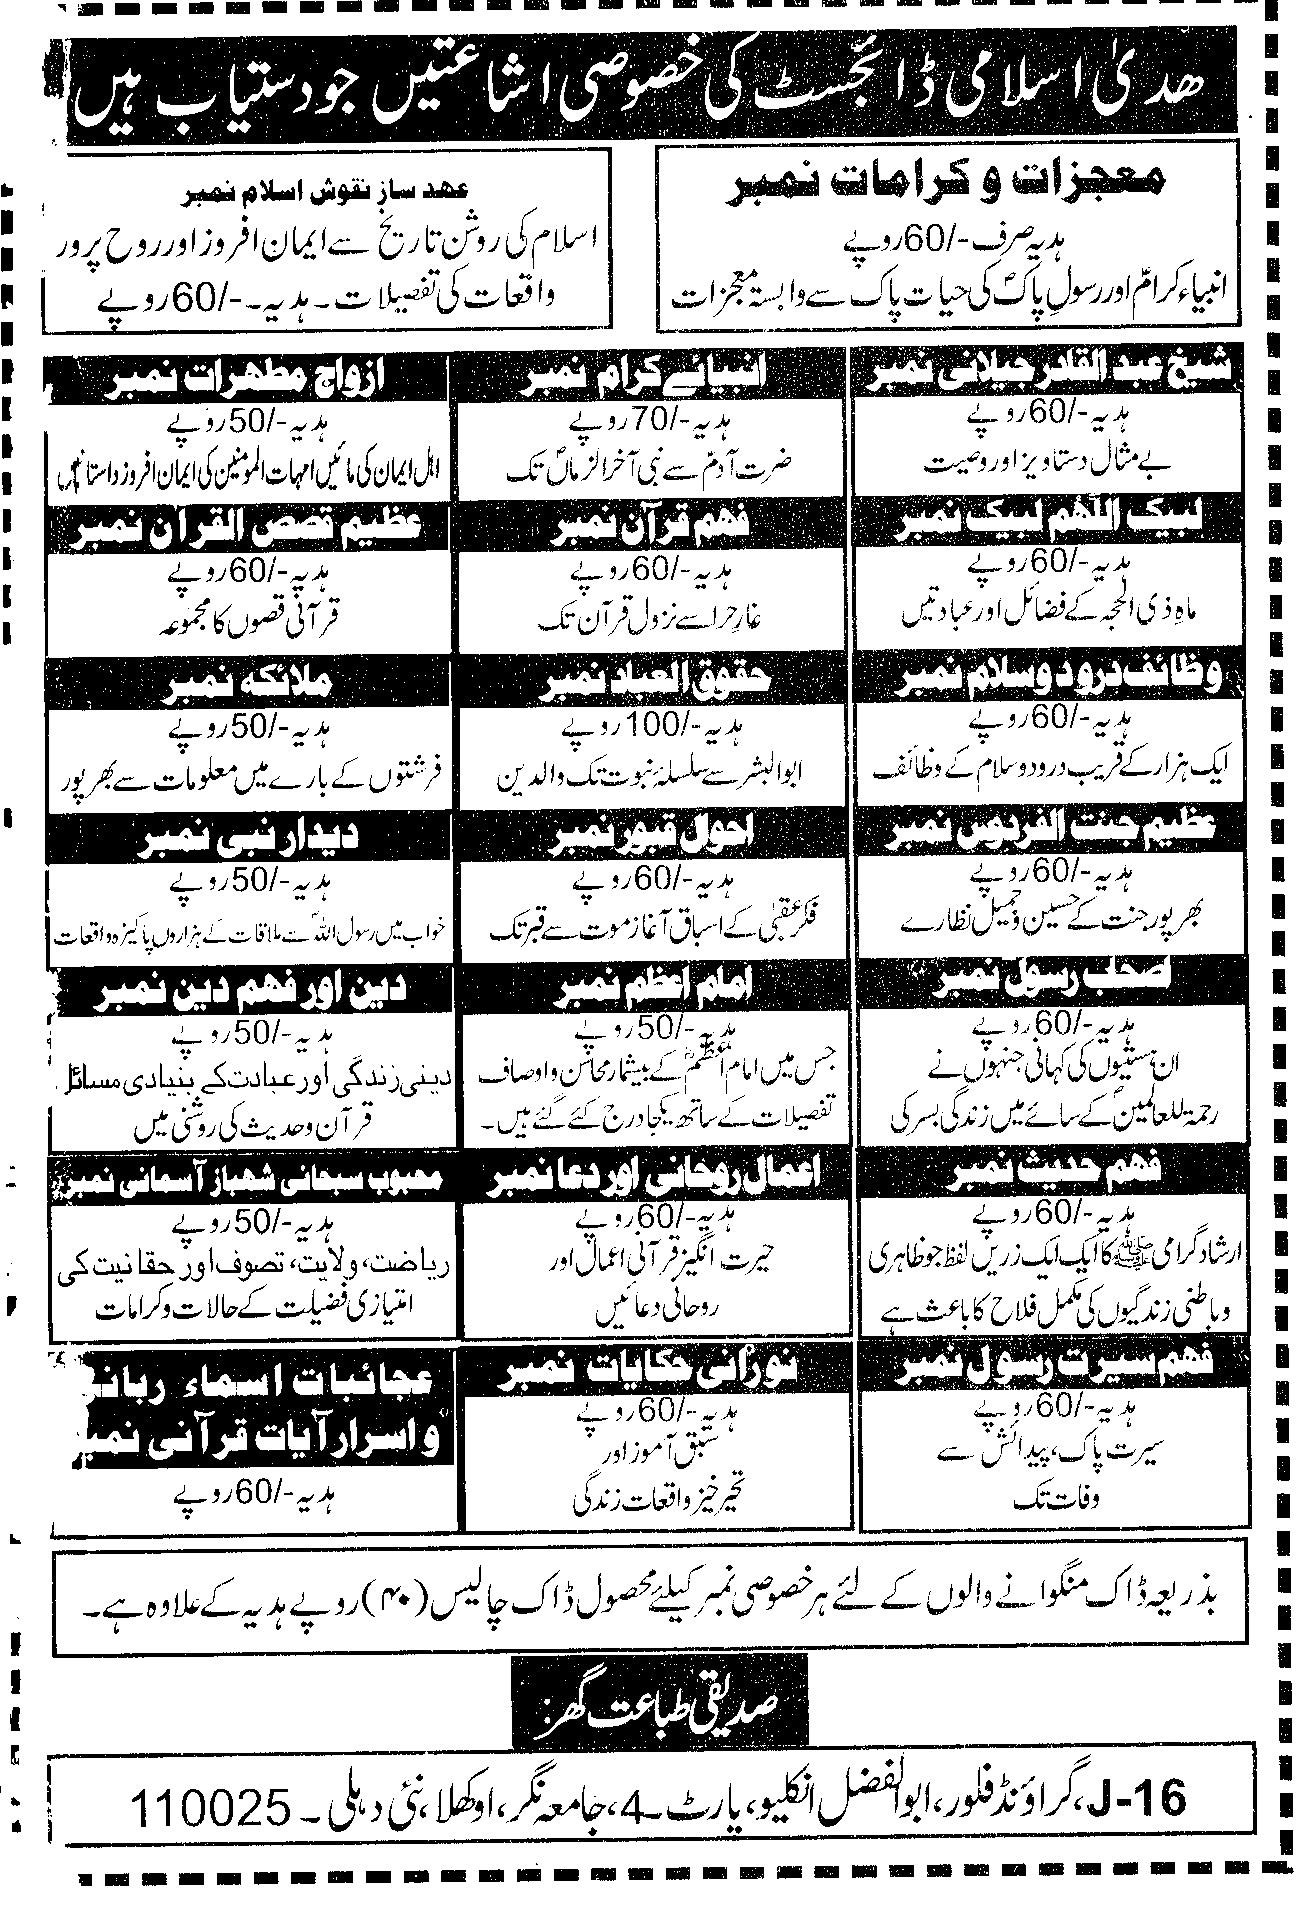 ھدیٰ اسلامی ڈائجسٹ کی خصوصی اشاعتیں جو دستیاب ہیں
معجزات و کرامات نمبر
ہدیہ صرف -/60 روپے
انبیاء کرامؑ اور رسولِ پاکؐ کی حیات پاک سے وابستہ معجزات
عہد ساز نقوش اسلام نمبر
اسلام کی روشن تاریخ سے ایمان افروز اور روح پرور
واقعات کی تفصیلات۔ ہدیہ۔ -/60 روپے
شیخ عبد القادر جیلانی نمبر
ہدیہ -/60 روپے
بے مثال دستاویز اور وصیت
انبیائے کرام نمبر
ہدیہ -/70 روپے
ضرت آدمؑ سے نبی آخر الزماںؐ تک
ازواج مطہرات نمبر
ہدیہ -/50 روپے
اہل ایمان کی مائیں امہات المومنین کی ایمان افروز داستانیں
لبیک اللھم لبیک نمبر
ہدیہ -/60 روپے
ماہِ ذی الحجہ کے فضائل اور عبادتیں
فہم قرآن نمبر
ہدیہ -/60 روپے
غارِ حرا سے نزول قرآن تک
عظیم قصص القرآن نمبر
ہدیہ -/60 روپے
قرآنی قصوں کا مجموعہ
وظائف درود و سلام نمبر
ہدیہ -/60 روپے
ایک ہزار کے قریب درود و سلام کے وظائف
حقوق العباد نمبر
ہدیہ -/100 روپے
ابوالبشر سے سلسلۂ نبوت تک والدین
ملائکہ نمبر
ہدیہ -/50 روپے
فرشتوں کے بارے میں معلومات سے بھرپور
عظیم جنت الفردوس نمبر
ہدیہ -/60 روپے
بھرپور جنت کے حسین و جمیل نظارے
احوال قبور نمبر
ہدیہ -/60 روپے
فکر عقبیٰ کے اسباق آغاز موت سے قبر تک
دیدار نبی نمبر
ہدیہ -/50 روپے
خواب میں رسول اللہؐ سے ملاقات کے ہزاروں پاکیزہ واقعات
اصحاب رسول نمبر
ہدیہ -/60 روپے
ان ہستیوں کی کہانی جنہوں نے
رحمۃ للعالمینؐ کے سائے میں زندگی بسر کی
امام اعظم نمبر
ہدیہ -/50 روپے
جس میں امام اعظمؒ کے بیشمار محاسن و اوصاف
تفصیلات کے ساتھ یکجا درج کئے گئے ہیں۔
دین اور فہم دین نمبر
ہدیہ -/50 روپے
دینی زندگی اور عبادت کے بنیادی مسائل
قرآن و حدیث کی روشنی میں
فہم حدیث نمبر
ہدیہ -/60 روپے
ارشاد گرامی ﷺ کا ایک ایک زریں لفظ جو ظاہری
و باطنی زندگیوں کی مکمل فلاح کا باعث ہے
اعمال روحانی اور دعا نمبر
ہدیہ -/60 روپے
حیرت انگیز قرآنی اعمال اور
روحانی دعائیں
محبوب سبحانی شہباز آسمانی نمبر
ہدیہ -/50 روپے
ریاضت، ولایت، تصوف اور حقانیت کی
امتیازی فضیلت کے حالات و کرامات
فہم سیرت رسول نمبر
ہدیہ -/60 روپے
سیرت پاک، پیدائش سے
وفات تک
نورانی حکایات نمبر
ہدیہ -/60 روپے
سبق آموز اور
تحیر خیز واقعات زندگی
عجائبات اسماء ربانی
و اسرار آیات قرآنی نمبر
ہدیہ -/60 روپے
بذریعہ ڈاک منگوانے والوں کے لئے ہر خصوصی نمبر کیلئے محصول ڈاک چالیس (۴۰) روپے ہدیہ کے علاوہ ہے۔
صدیقی طباعت گھر:
J-16، گراؤنڈ فلور، ابوالفضل انکلیو، پارٹ۔4، جامعہ نگر، اوکھلا، نئی دہلی۔ 110025